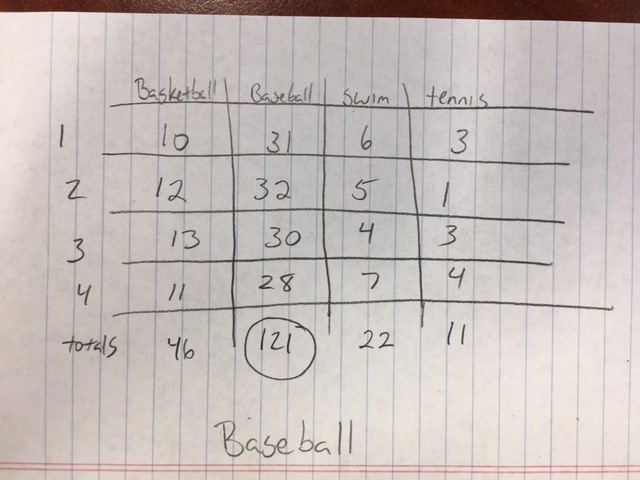 Basketball Baseball swim tennis
1 10 31 6 3
2 12 32 5 1
3 13 30 4 3
4 11 28 7 4
totals 46 121 22 11
Baseball